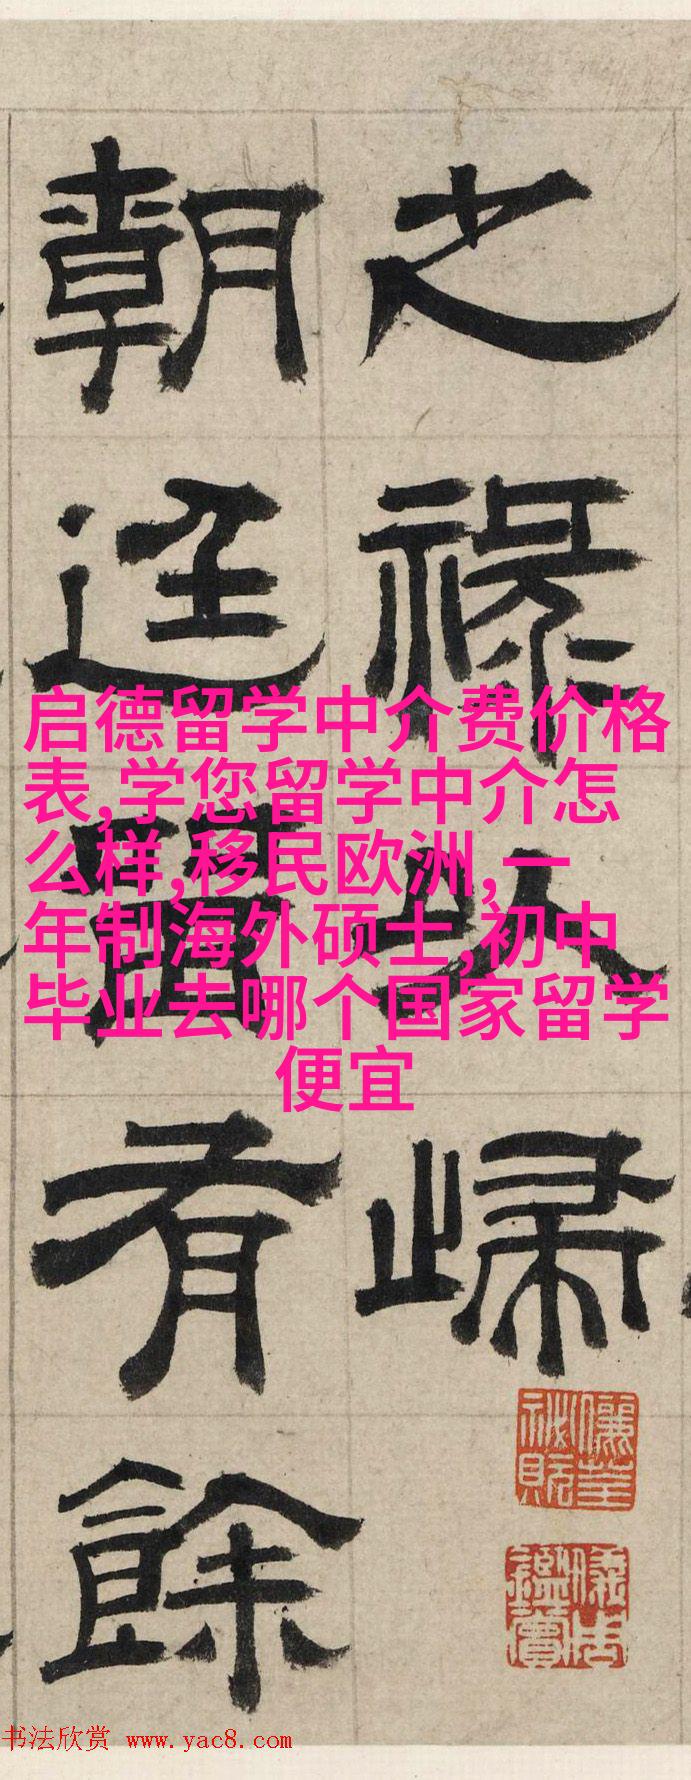 之祿以歸
朝廷畱有餘
启德留学中介费价格
表,学您留学中介怎
么样,移民欧洲,一
年制海外硕士,初中
毕业去哪个国家留学
便宜
书法欣赏 www.yac8.com